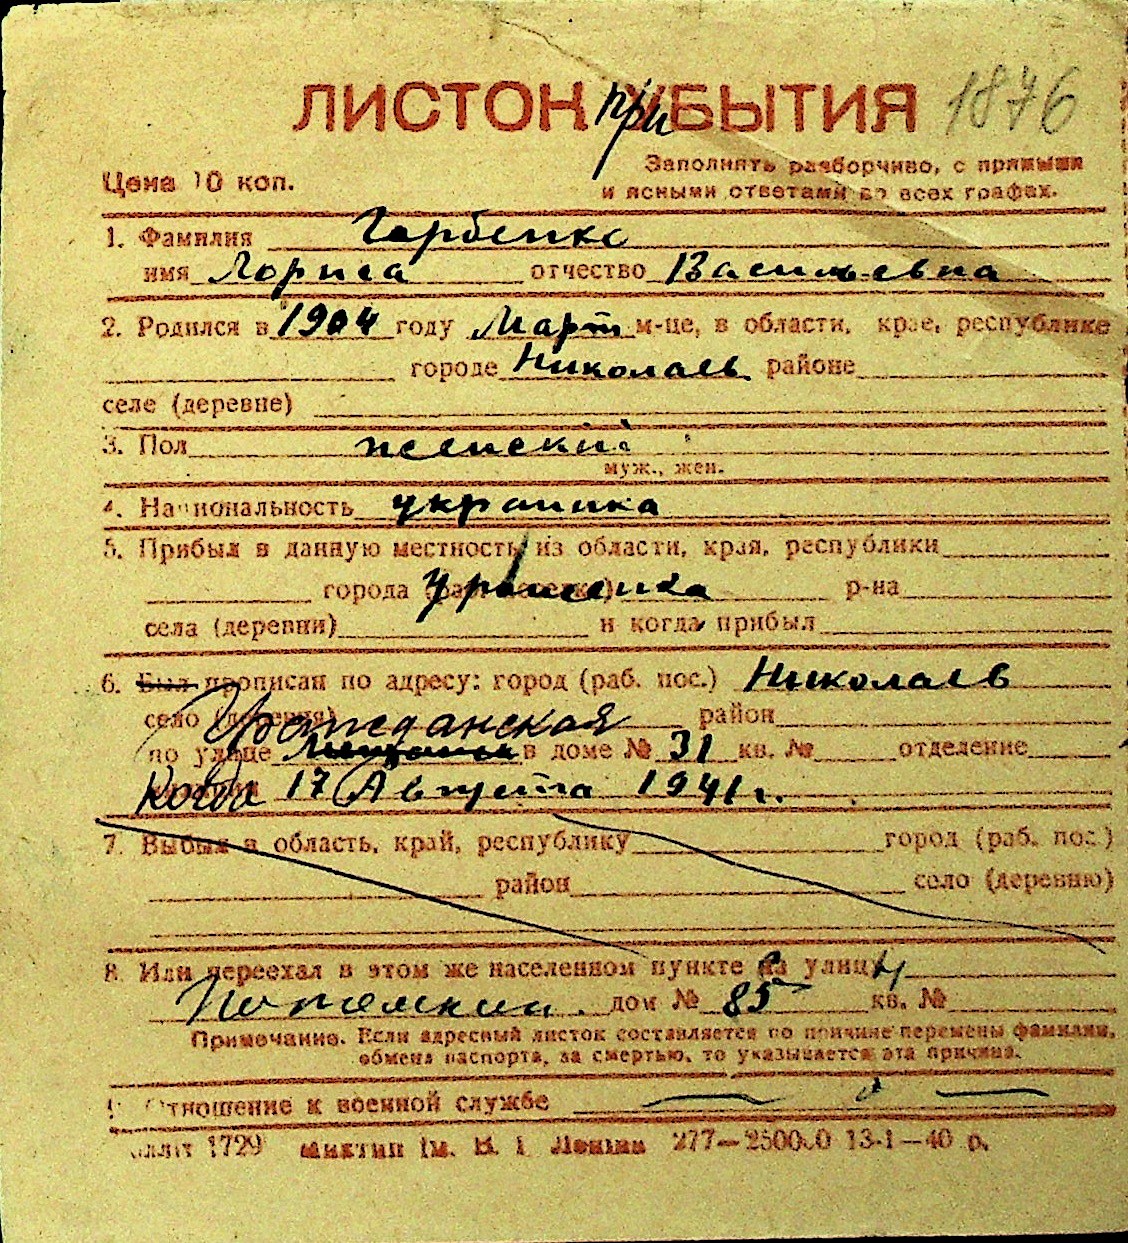 ЛИСТОК при БЫТИЯ 1876
Цена 10 коп.
Заполнять разборчиво, с прямыми
и ясными ответами во всех графах.
1. Фамилия Гарбенко
имя Лориса отчество Васильевна
2. Родился в 1904 году Март м-це, в области, крае, республике
городе Николаев районе
селе (деревне)
3. Пол женский
муж., жен.
4. Национальность украинка
5. Прибыл в данную местность из области, края, республики
города р-на
села (деревни) и когда прибыл
6. Был прописан по адресу: город (раб. пос.) Николаев
село (деревня) Гражданская район
по улице в доме № 31 кв. № отделение
Когда 17 Августа 1941 г.
7. Выбыл в область, край, республику город (раб. пос.)
район село (деревню)
8. Или переехал в этом же населенном пункте на улицу
дом № 85 кв. №
Примечание. Если адресный листок составляется по причине перемены фамилии,
обмена паспорта, за смертью, то указывается эта причина.
9. Отношение к военной службе
1729 Ім. В. І. Леніна 277—250000 13-1—40 р.